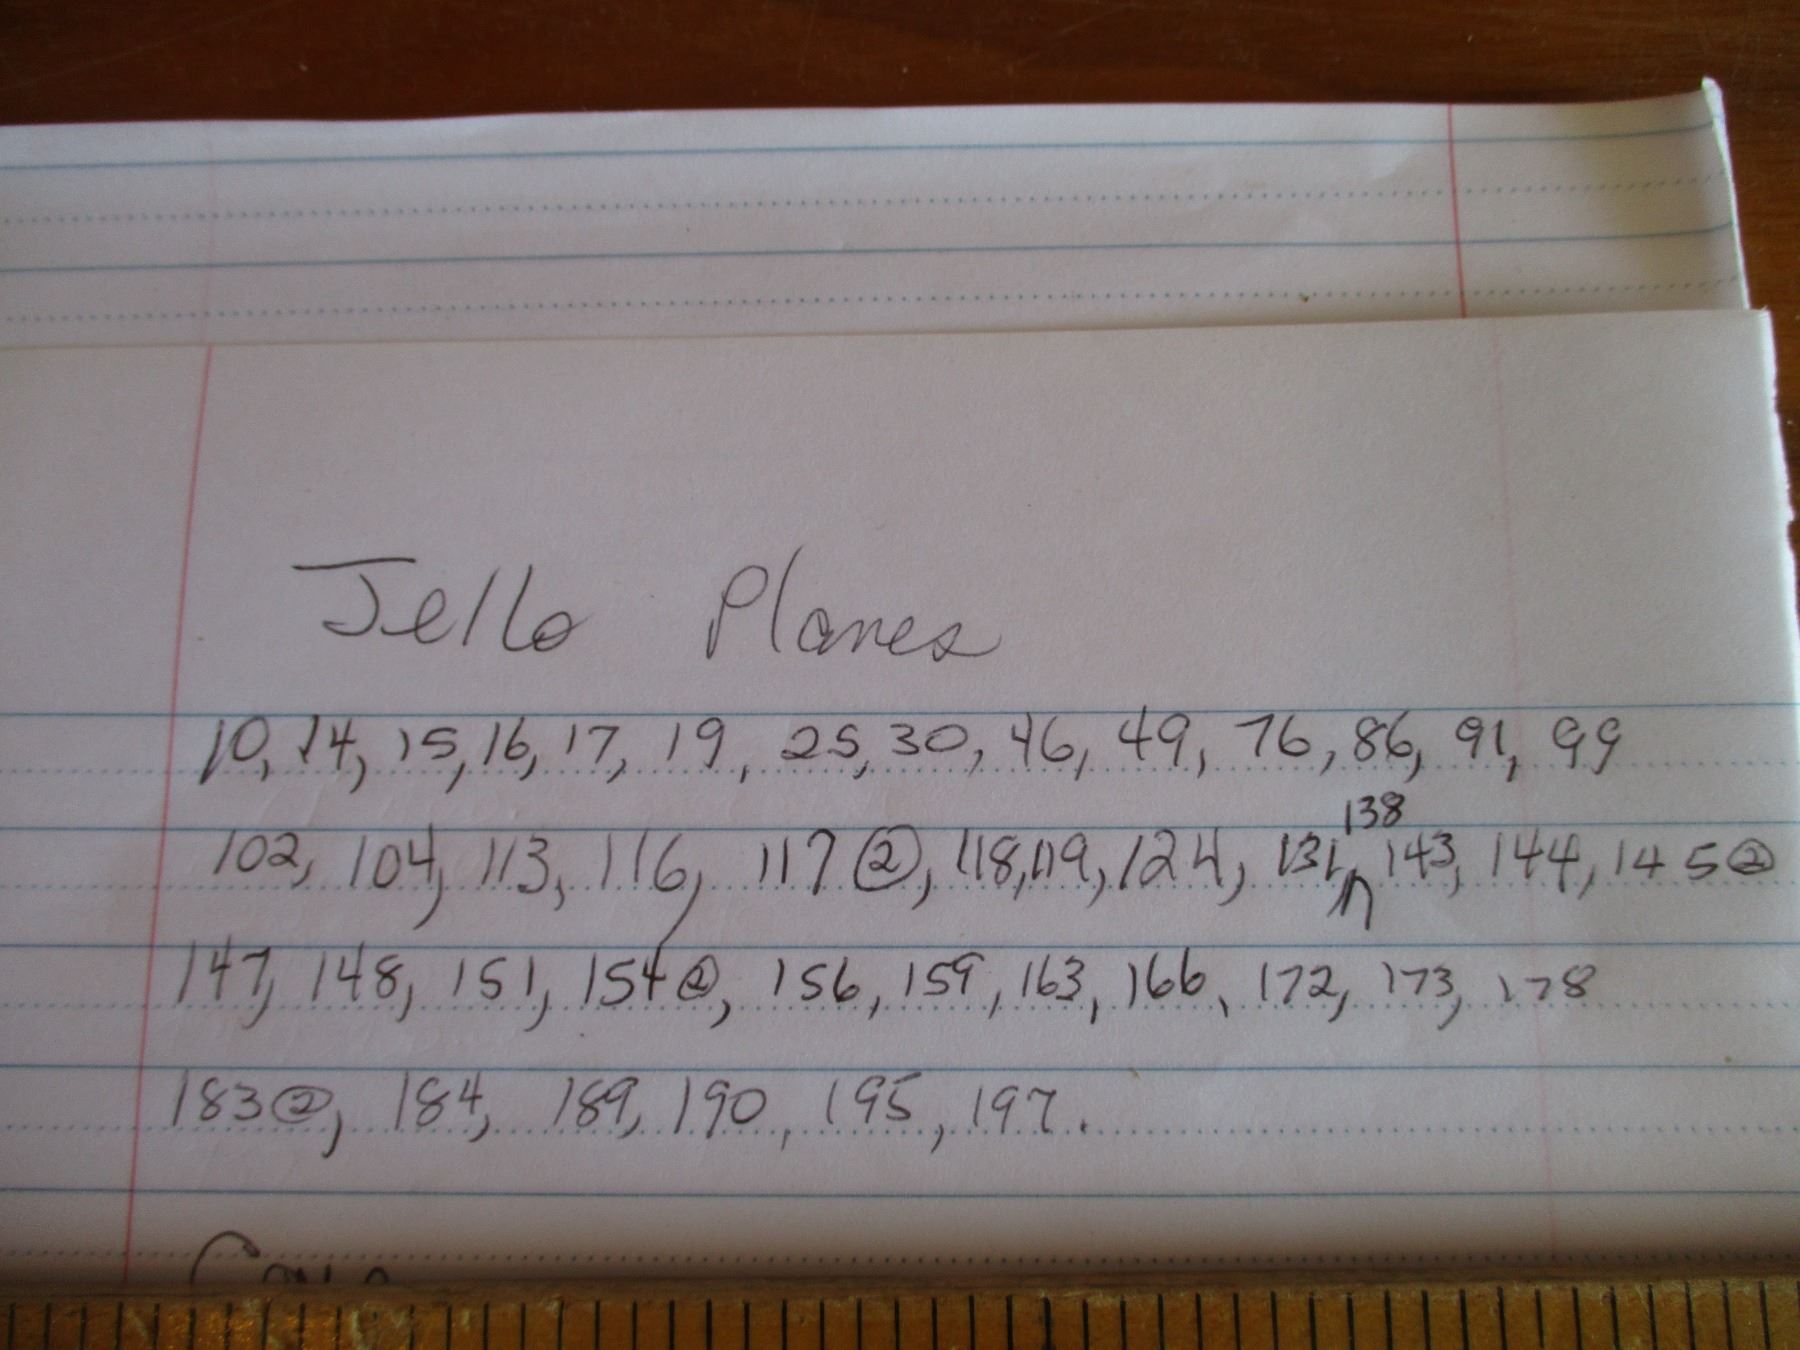 Jello Planes
10, 14, 15, 16, 17, 19, 25, 30, 46, 49, 76, 86, 91, 99
102, 104, 113, 116, 117 ②, 118, 119, 124, 131, 138 143, 144, 145 ②
147, 148, 151, 154 ②, 156, 159, 163, 166, 172, 173, 178
183 ②, 184, 189, 190, 195, 197.